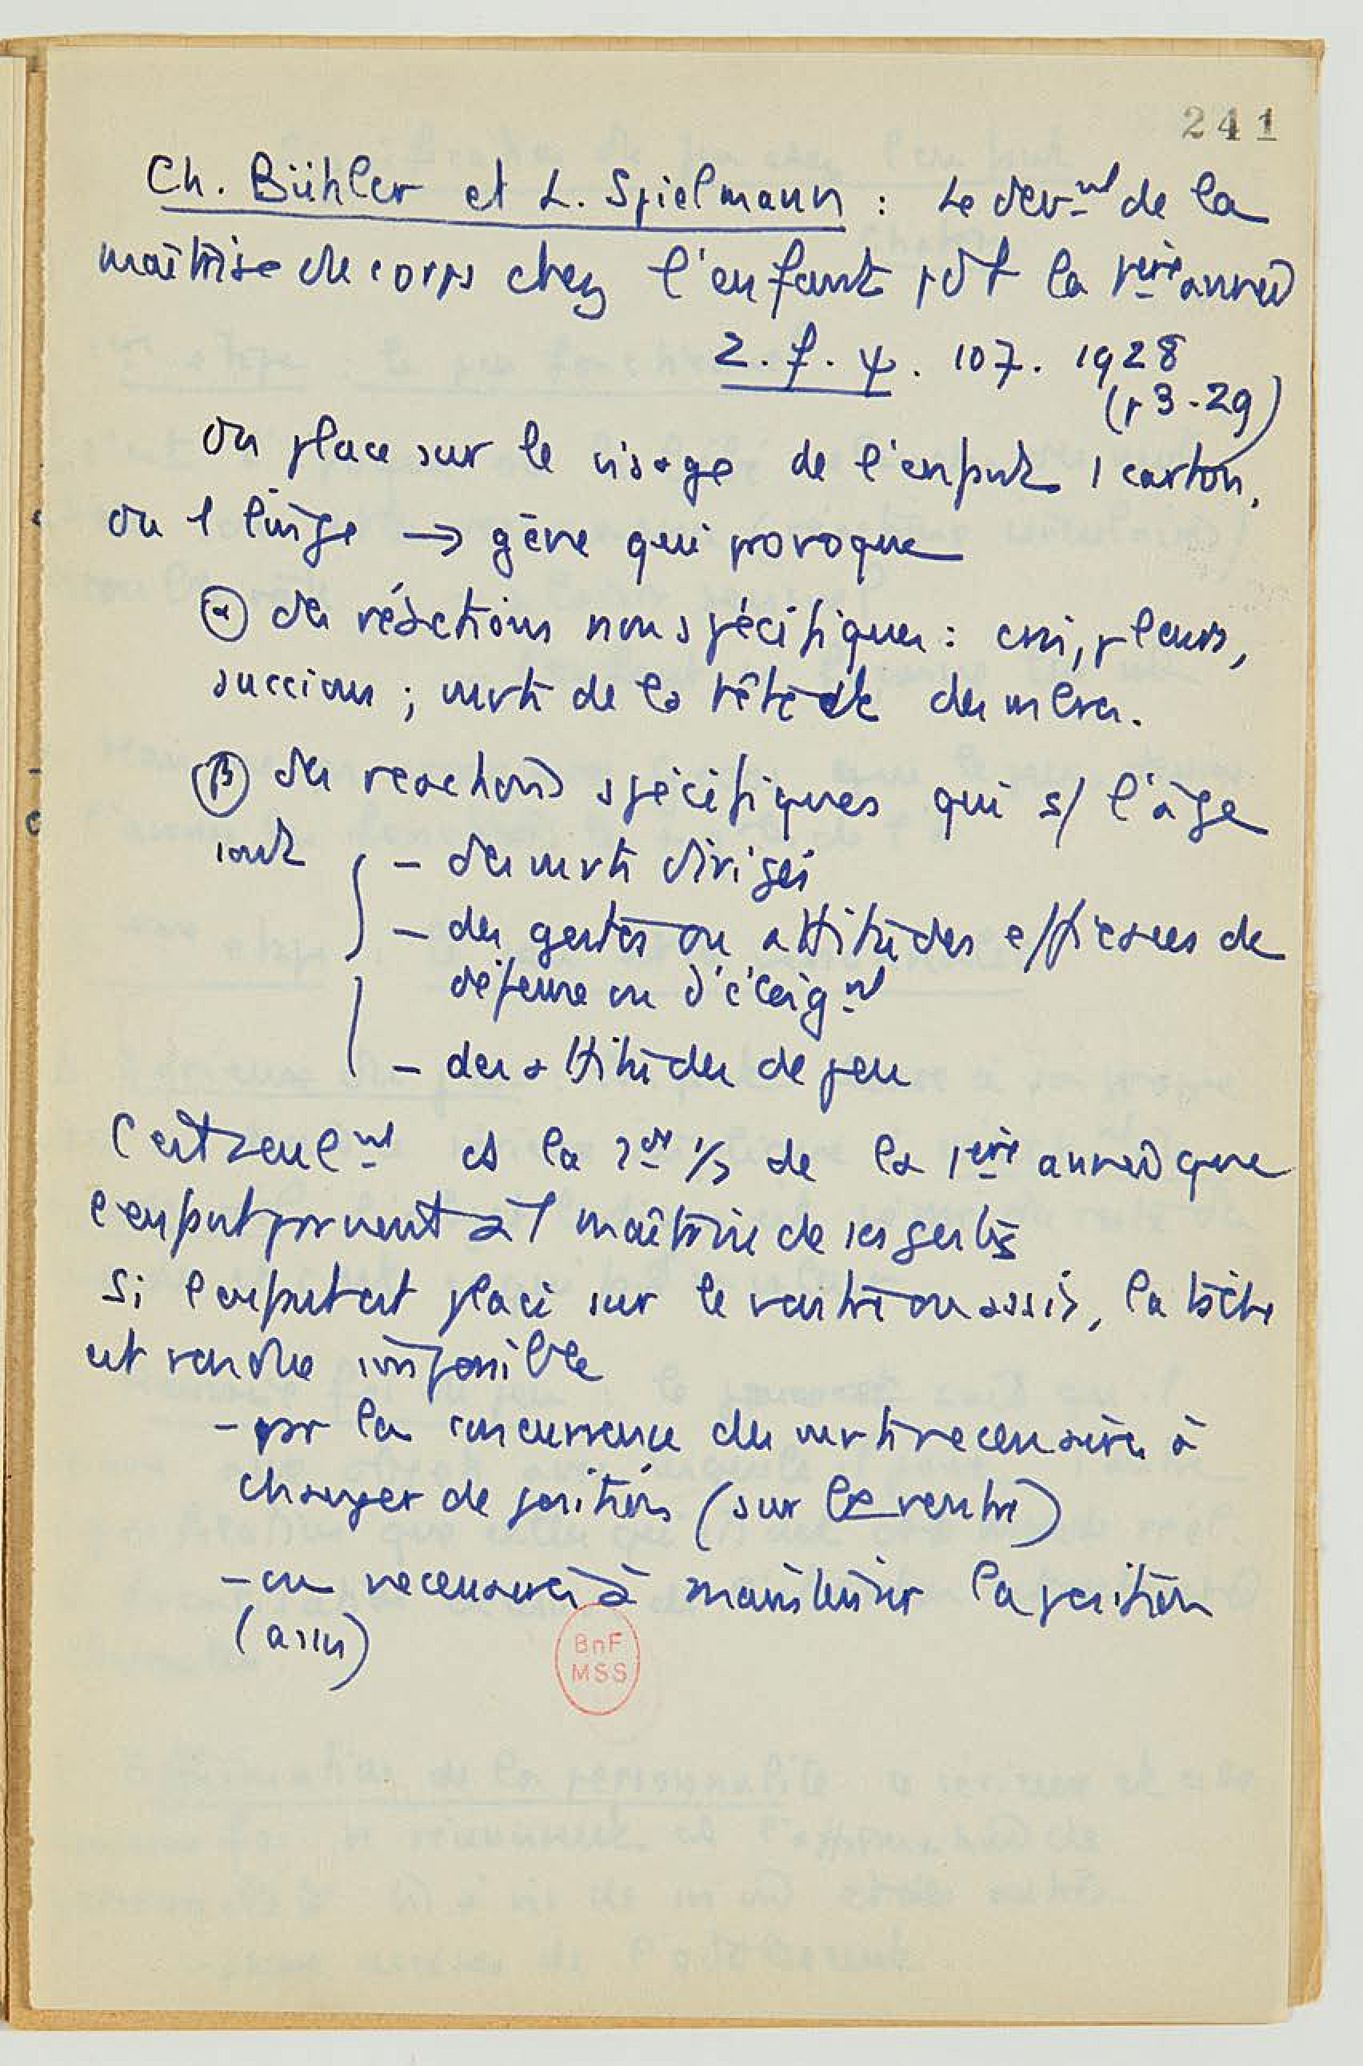 241
Ch. Bühler et L. Spielmann : Le devnt de la
maîtrise du corps chez l'enfant pdt la 1ère année
Z. f. ψ. 107. 1928
(p 3-29)
On place sur le visage de l'enfant 1 carton,
ou 1 linge → gêne qui provoque
α des réactions non spécifiques : cris, pleurs,
succions ; mvts de la tête et des mbres.
β des reactions spécifiques qui s/ l'âge
sont { - des mvts dirigés
- des gestes ou attitudes efficaces de
défense ou d'éloignt
- des attitudes de jeu
C'est seulnt ds la 2de 1/2 de la 1ère année que
l'enfant parvient à 1 maîtrise de ses gestes
Si l'enfant est placé sur le ventre ou assis, la tâche
est rendue impossible
- par la concurrence des mvts necessaires à
changer de position (sur le ventre)
- ou necessaires à maintenir la position
(assis)
BnF
MSS